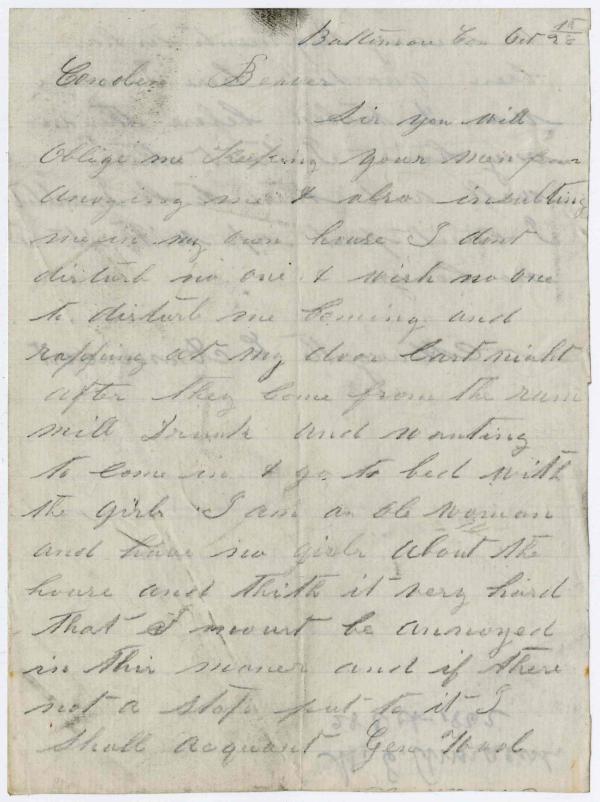 Baltimore Con Oct 15
Beaver
Sir you will
Oblige me Keeping your men from
anoying me & also insulting
me in my own house I dont
disturb no one & wish no one
to disturb me Coming and
rapping at my door Last night
after they Come from the rum
mill Drunk and wanting
to Come in & go to bed with
the girls I am a ole woman
and have no girls about the
house and thith it very hard
that I mourt be annoyed
in this maner and if there
not a stop put to it I
shall acquant Gen Wool